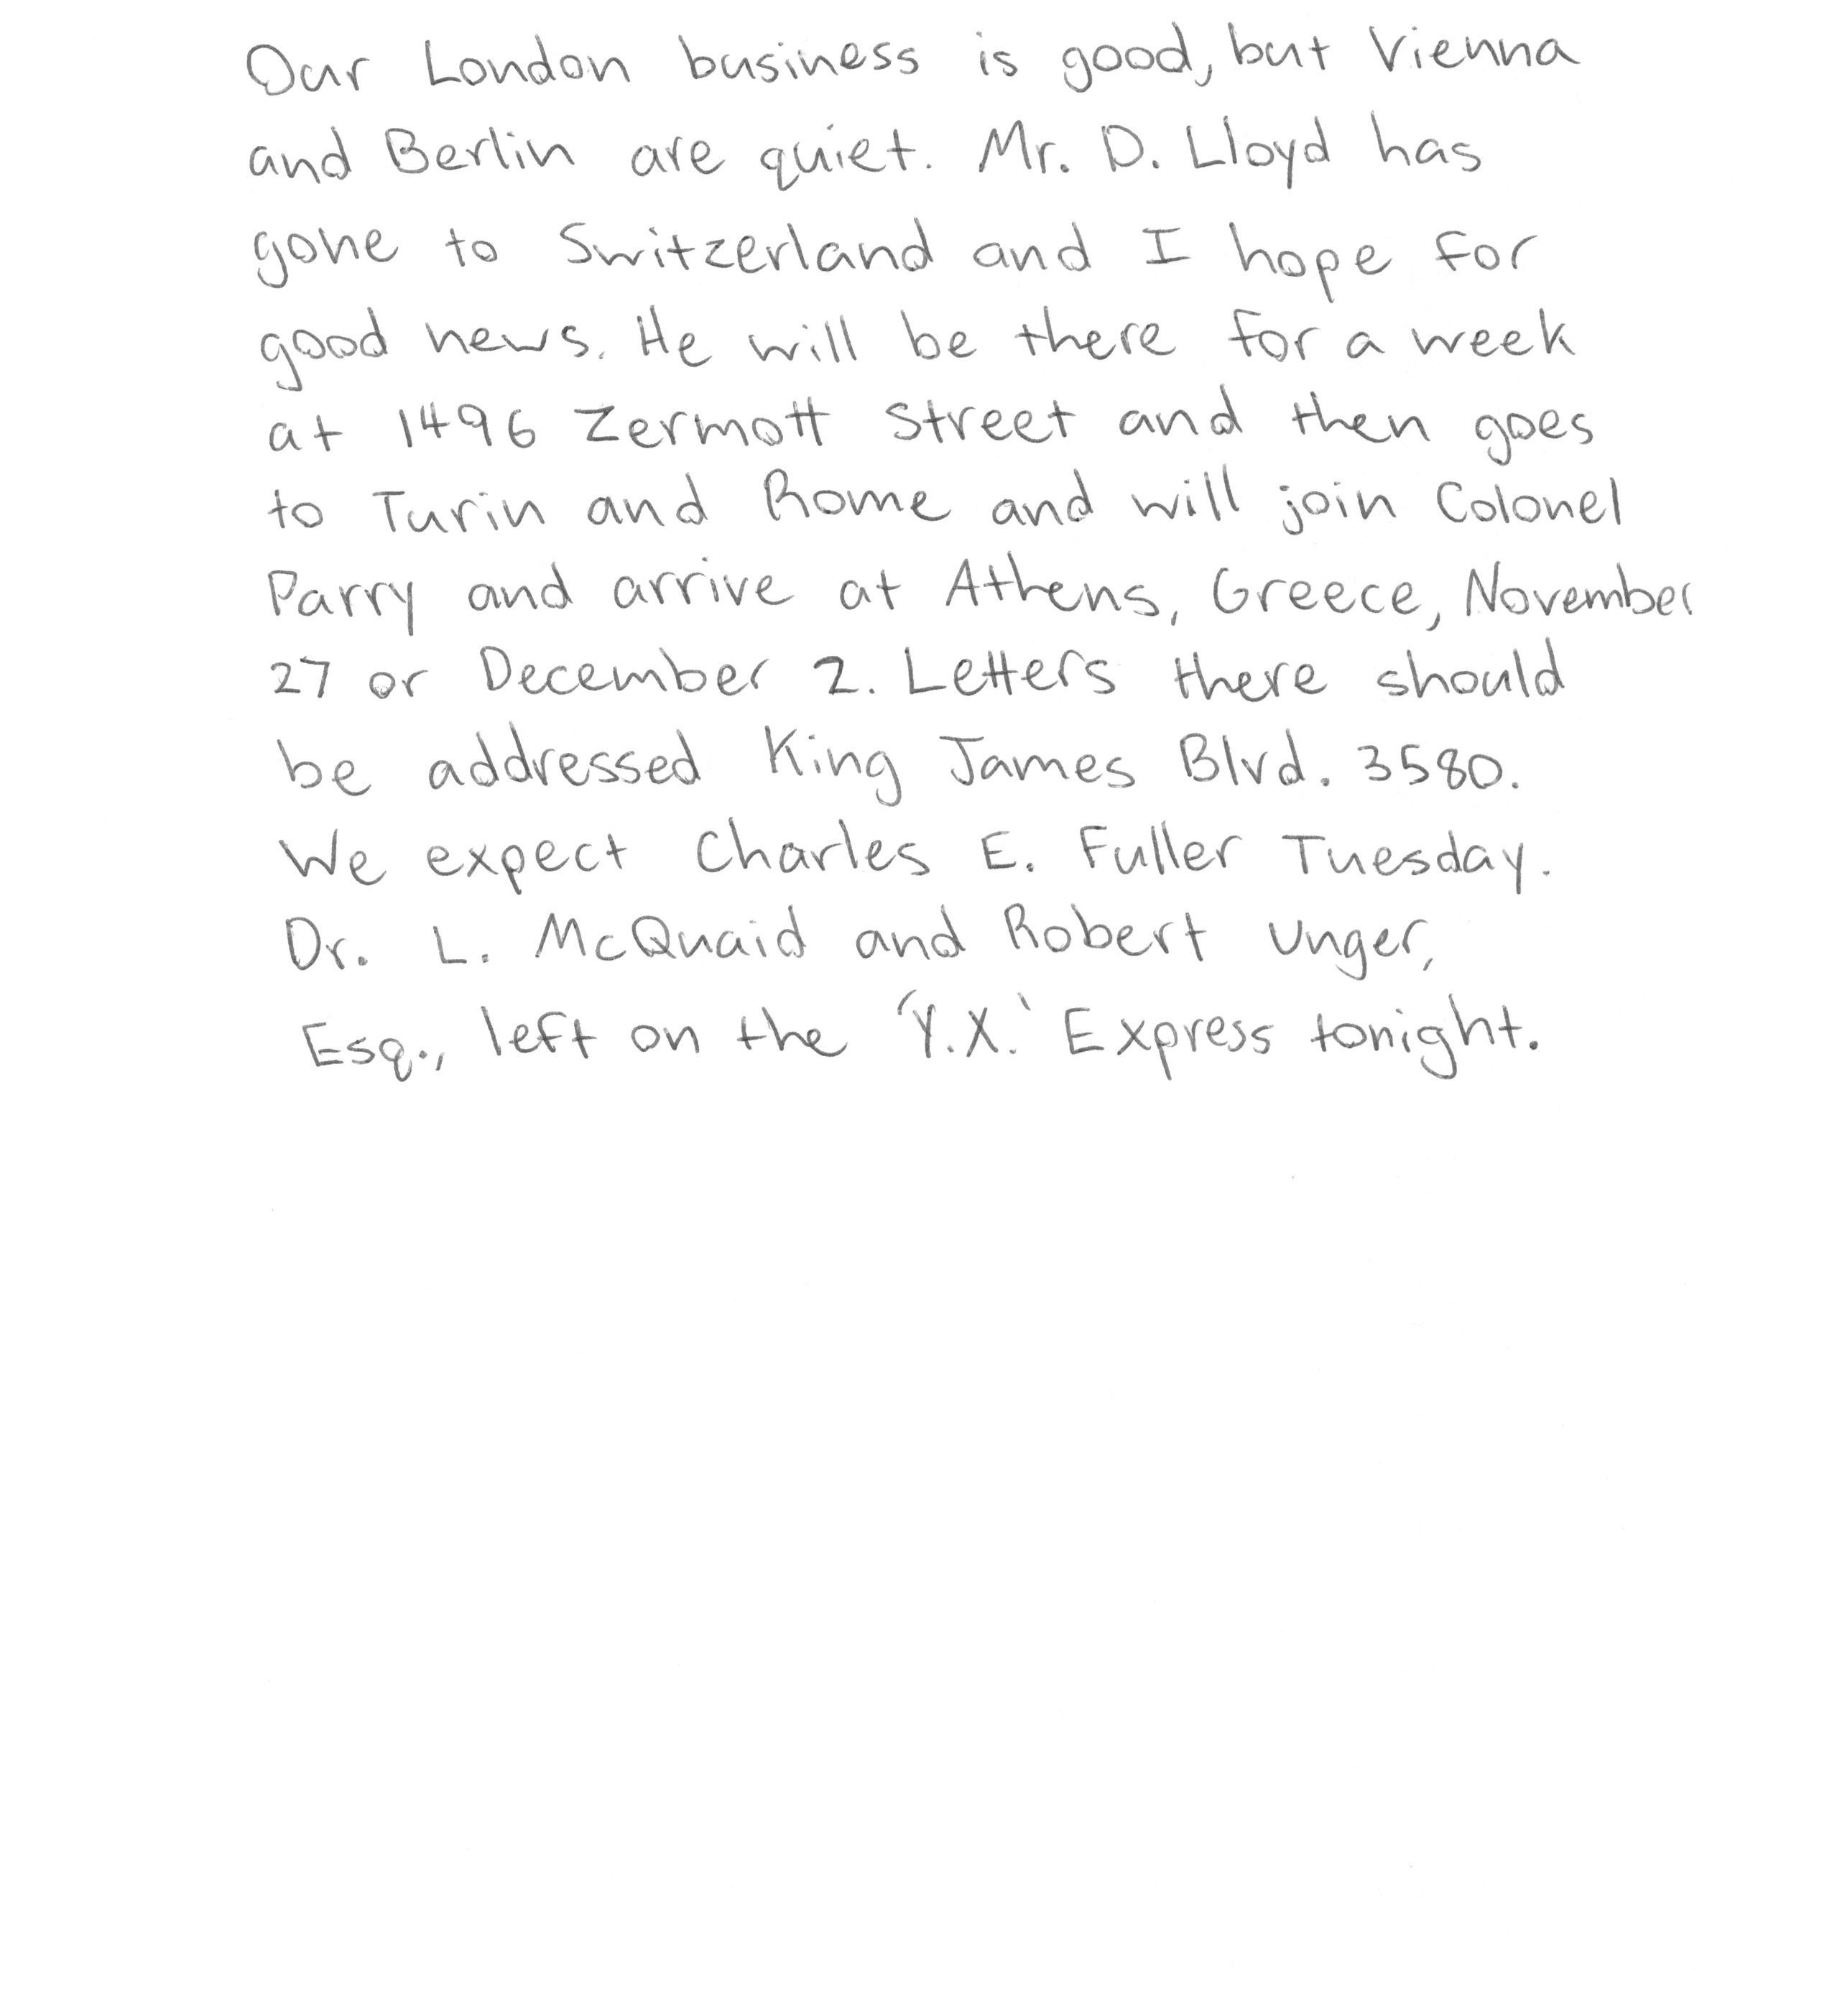 Our London business is good, but Vienna
and Berlin are quiet. Mr. D. Lloyd has
gone to Switzerland and I hope for
good news. He will be there for a week
at 1496 Zermott Street and then goes
to Turin and Rome and will join Colonel
Parry and arrive at Athens, Greece, November
27 or December 2. Letters there should
be addressed King James Blvd. 3580.
We expect Charles E. Fuller Tuesday.
Dr. L. McQuaid and Robert Unger,
Esq., left on the 'Y.X.' Express tonight.